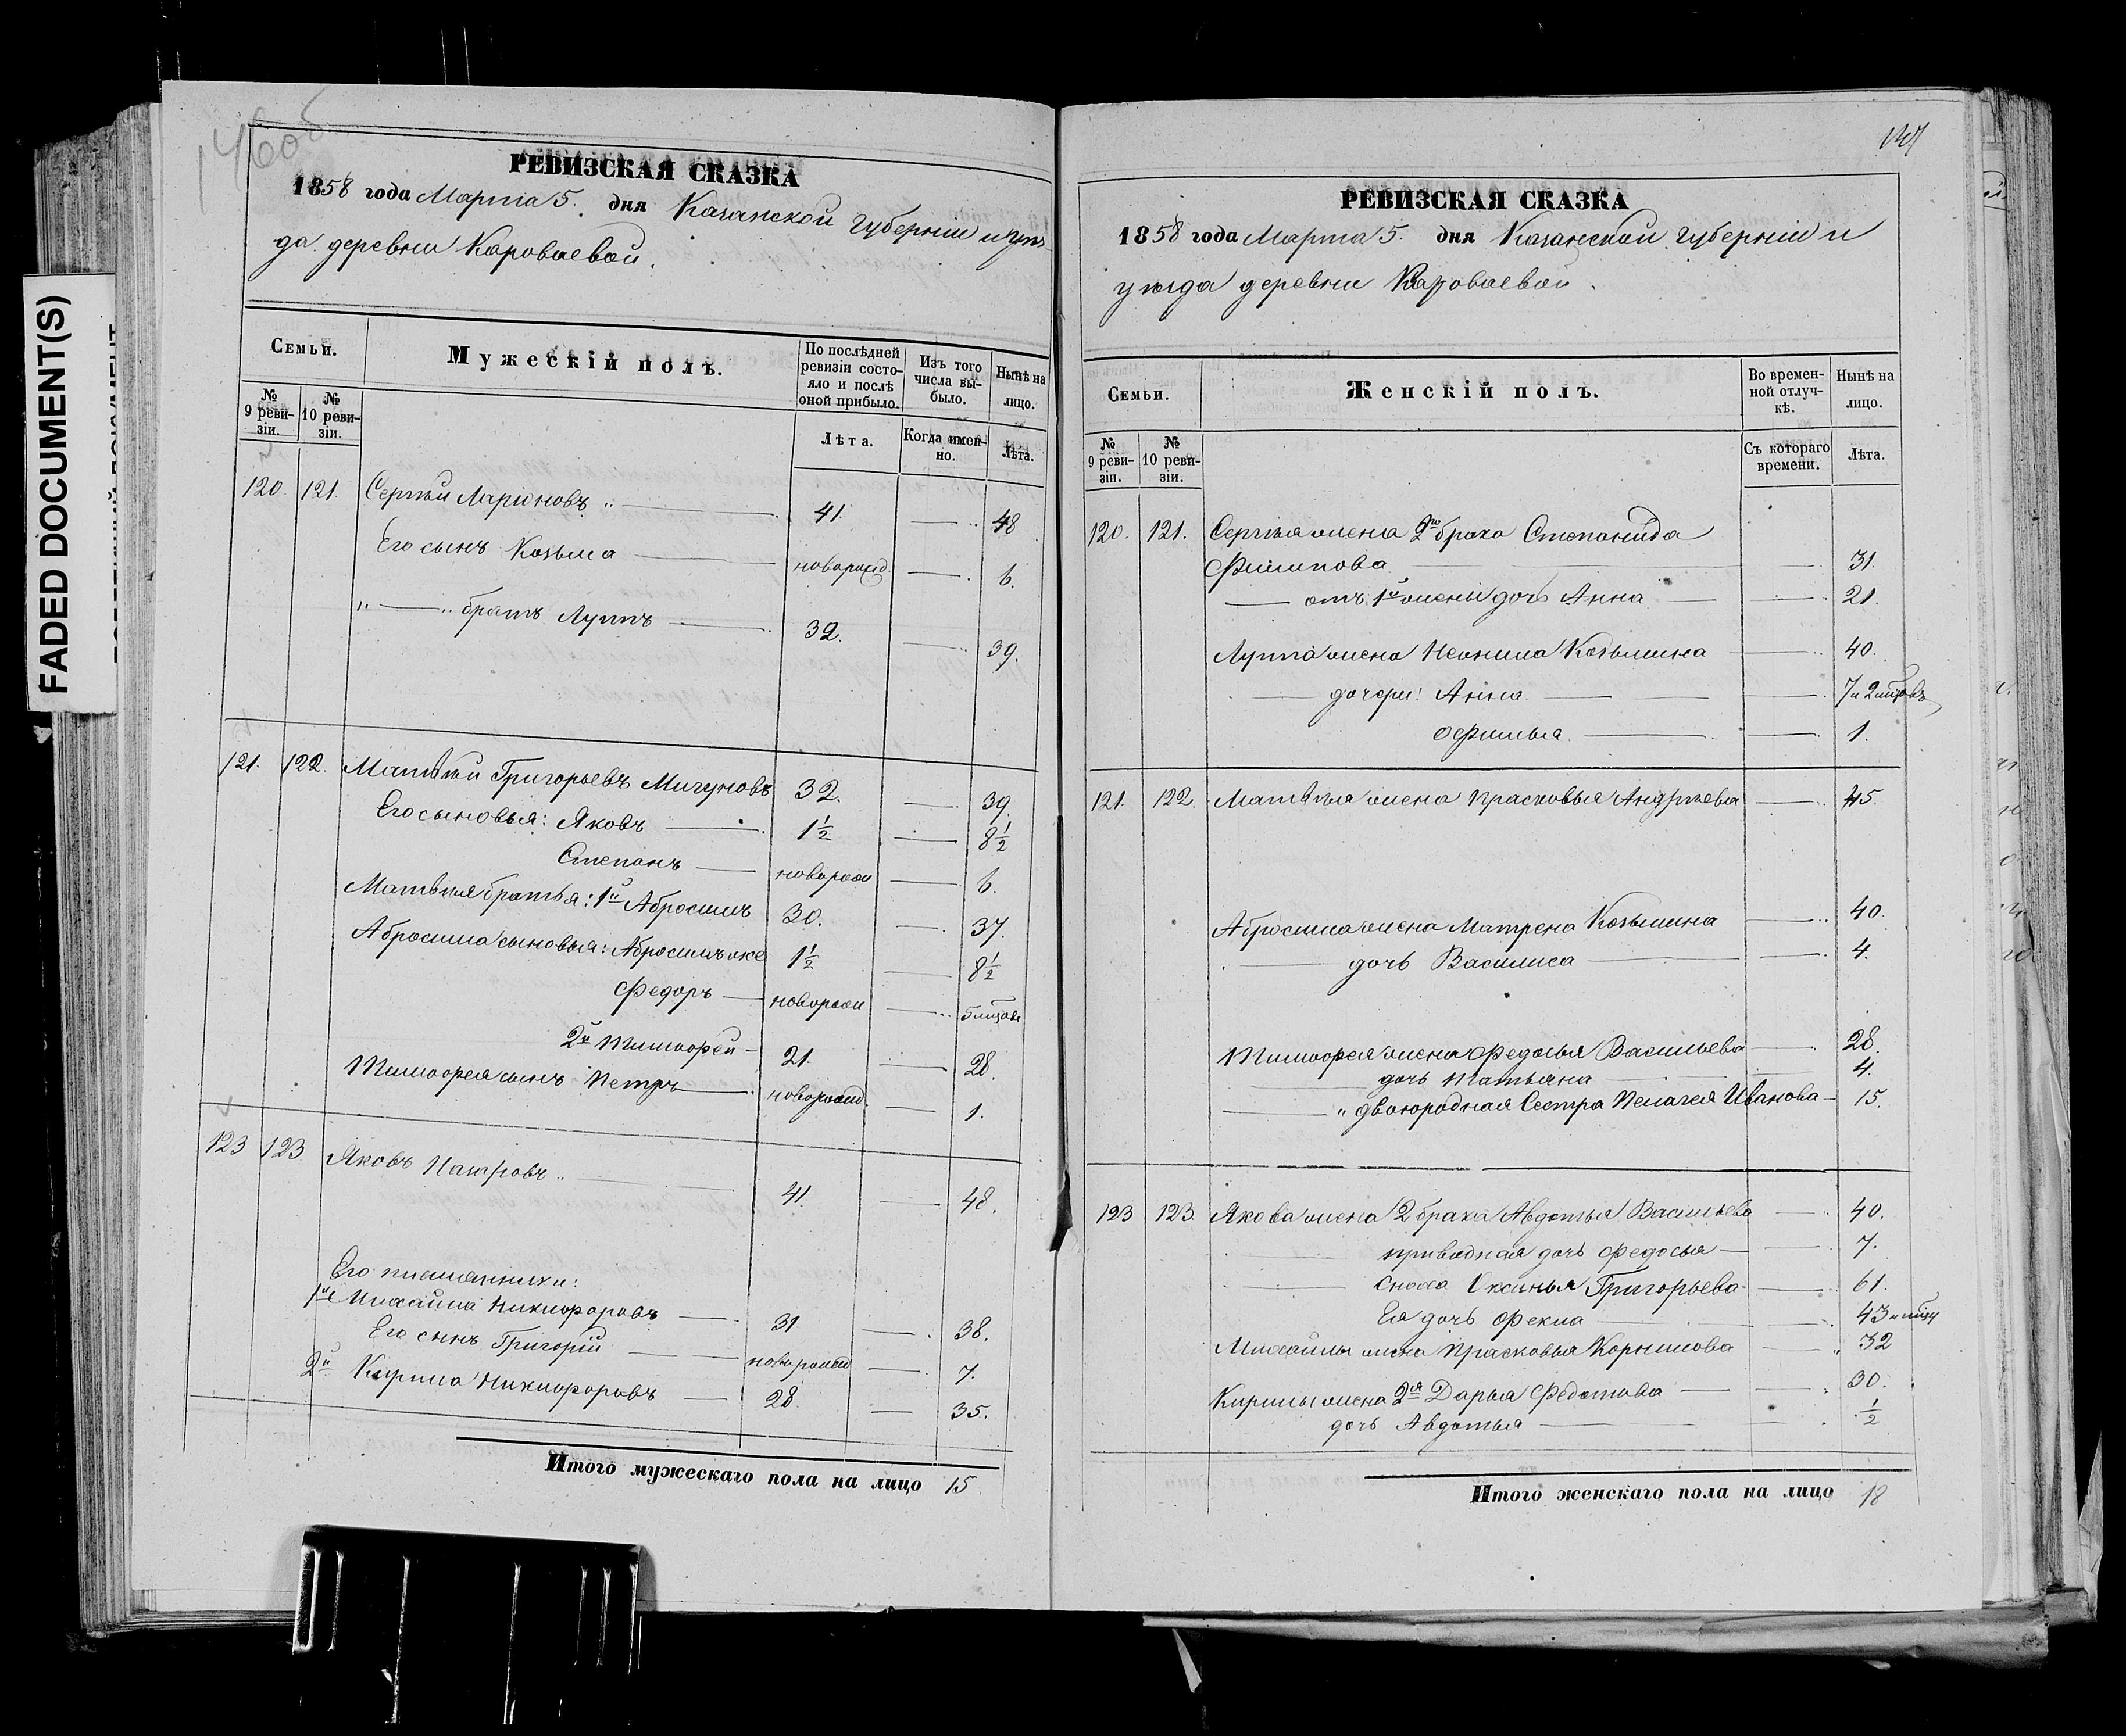 FADED DOCUMENT(S)
146об
РЕВИЗСКАЯ СКАЗКА
1858 года Марта 5. дня Казанской губерніи и уѣз-
да деревни Короваевой.
Семьи.
Мужескій полъ.
По послѣдней ревизіи состояло и послѣ оной прибыло.
Изъ того числа выбыло.
Нынѣ на лицо.
№ 9 ревизіи.
№ 10 ревизіи.
Лѣта.
Когда именно.
Лѣта.
120. 121. Сергѣй Ларіоновъ 41. 48
Его сынъ Козьма новорожд 6.
" — " братъ Луппъ 32. 39.
121. 122. Матвѣй Григорьевъ Мичуновъ 32. 39.
Его сыновья: Яковъ 1½ 8½
Степанъ новорож 6.
Матвѣя братья: 1й Абросимъ 30. 37.
Абросима сыновья: Абросимъ же 1½ 8½
Федоръ новорож 5 мцовъ
2й Тимофей 21. 28.
Тимофея сынъ Петръ новорожд. 1.
123 123 Яковъ Петровъ 41. 48.
Его племянники:
1й Михайла Никифоровъ 31 38.
Его сынъ Григорій новорожд 7.
2й Кирила Никифоровъ 28. 35.
Итого мужескаго пола на лицо 15
147
РЕВИЗСКАЯ СКАЗКА
1858 года Марта 5. дня Казанской губерніи и
уѣзда деревни Короваевой.
Семьи.
Женскій полъ.
Во временной отлучкѣ.
Нынѣ на лицо.
№ 9 ревизіи.
№ 10 ревизіи.
Съ котораго времени.
Лѣта.
120. 121. Сергѣя жена 2го брака Степанида
Филипова 31.
отъ 1й жены дочь Анна 21.
Луппа жена Неонила Козьмина 40.
дочери: Анна 7 и 2 мцовъ
Офимья 1.
121. 122. Матвѣя жена Прасковья Андреева 45.
Абросима жена Матрена Козьмина 40.
дочь Василиса 4.
Тимофея жена Федосья Васильева 28.
дочь Татьяна 4.
" двоюродная Сестра Пелагея Иванова 15.
123 123. Якова жена 2 брака Авдотья Васильева 40.
приводная дочь Федосья 7.
сноха Оксинья Григорьева 61.
Ея дочь Фекла 43
Михайлы жена Прасковья Корнилова 32
Кирилы жена 2я Дарья Федотова 30.
дочь Авдотья ½
Итого женскаго пола на лицо 18